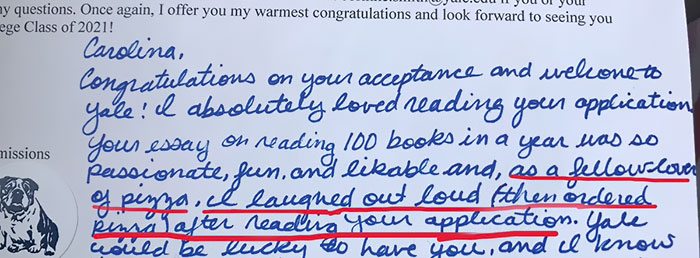 ny questions. Once again, I offer you my warmest congratulations and look forward to seeing you
ege Class of 2021!
Carolina,
Congratulations on your acceptance and welcome to
Yale! I absolutely loved reading your application
Your essay on reading 100 books in a year was so
missions
passionate, fun, and likable and, as a fellow lover
of pizza, I laughed out loud (then ordered
pizza) after reading your application. Yale
would be lucky to have you, and I know